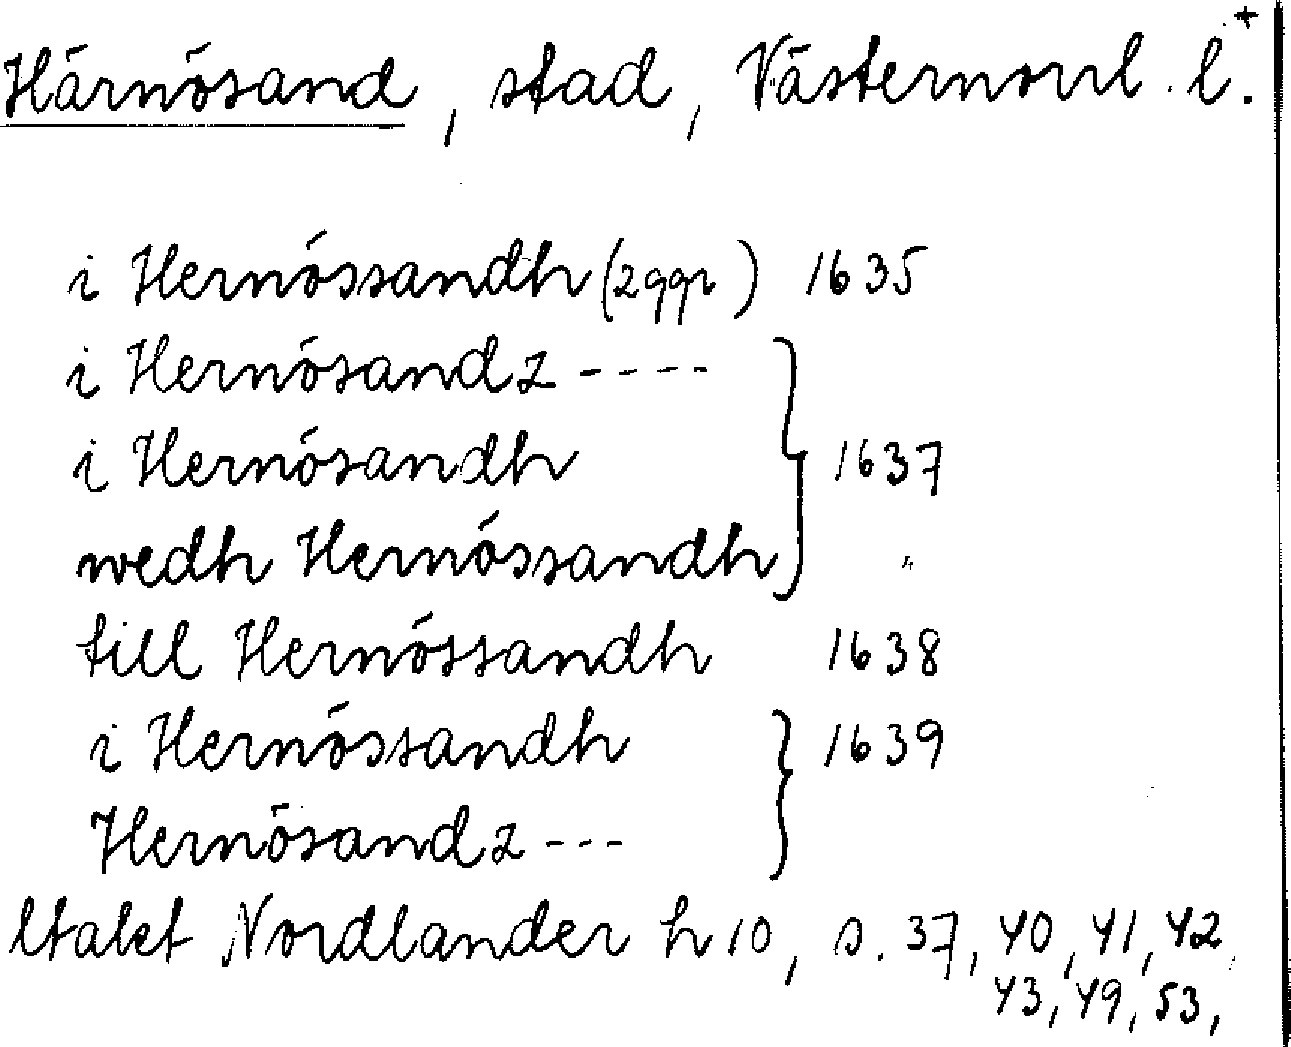 Härnösand, stad, Västernorrl. l.+
i Hernössandh (2 ggr) 1635
i Hernösandz ----
i Hernösandh 1637
wedh Hernössandh "
till Hernössandh 1638
i Hernössandh 1639
Hernösandz ---
Nordlander h 10, s. 37, 40, 41, 42,
43, 49, 53,